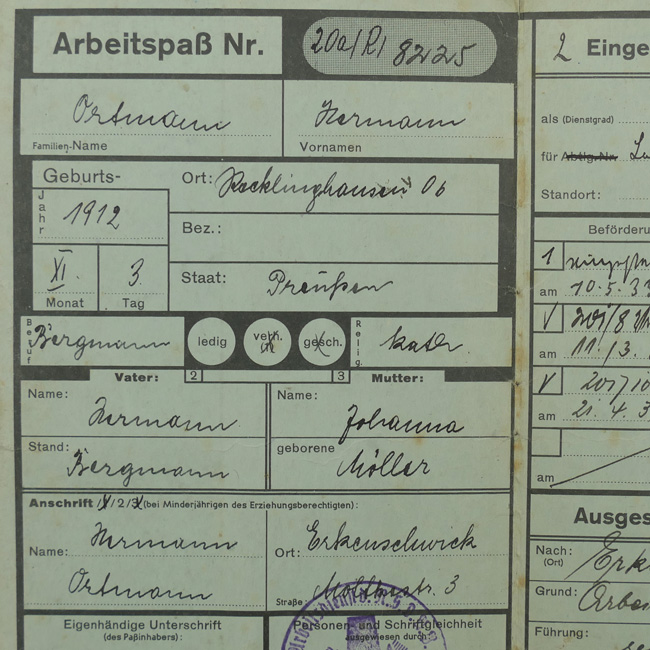 Arbeitspaß Nr. 20a/R1 8225
Ortmann Hermann
Familien-Name Vornamen
Geburts-
Ort: Recklinghausen Ob
Jahr 1912
Bez.:
Staat: Preußen
XI. 3.
Monat Tag
Beruf Bergmann
ledig verh. gesch.
Relig. kath
Vater: 2 3 Mutter:
Name: Hermann Name: Johanna
Stand: Bergmann geborene Möller
Anschrift 1/2/3 (bei Minderjährigen des Erziehungsberechtigten):
Name: Hermann Ort: Erkenschwick
Ortmann Straße: Moltkestr. 3
Eigenhändige Unterschrift
(des Paßinhabers):
Personen- und Schriftgleichheit
ausgewiesen durch
2 Einge
als (Dienstgrad)
für Abtlg. Nr.
Standort:
Beförder
1
am 10.5.33
am 11.3.
am 21.4.3
am
Ausges
Nach: Erk
(Ort)
Grund: Arbe
Führung: